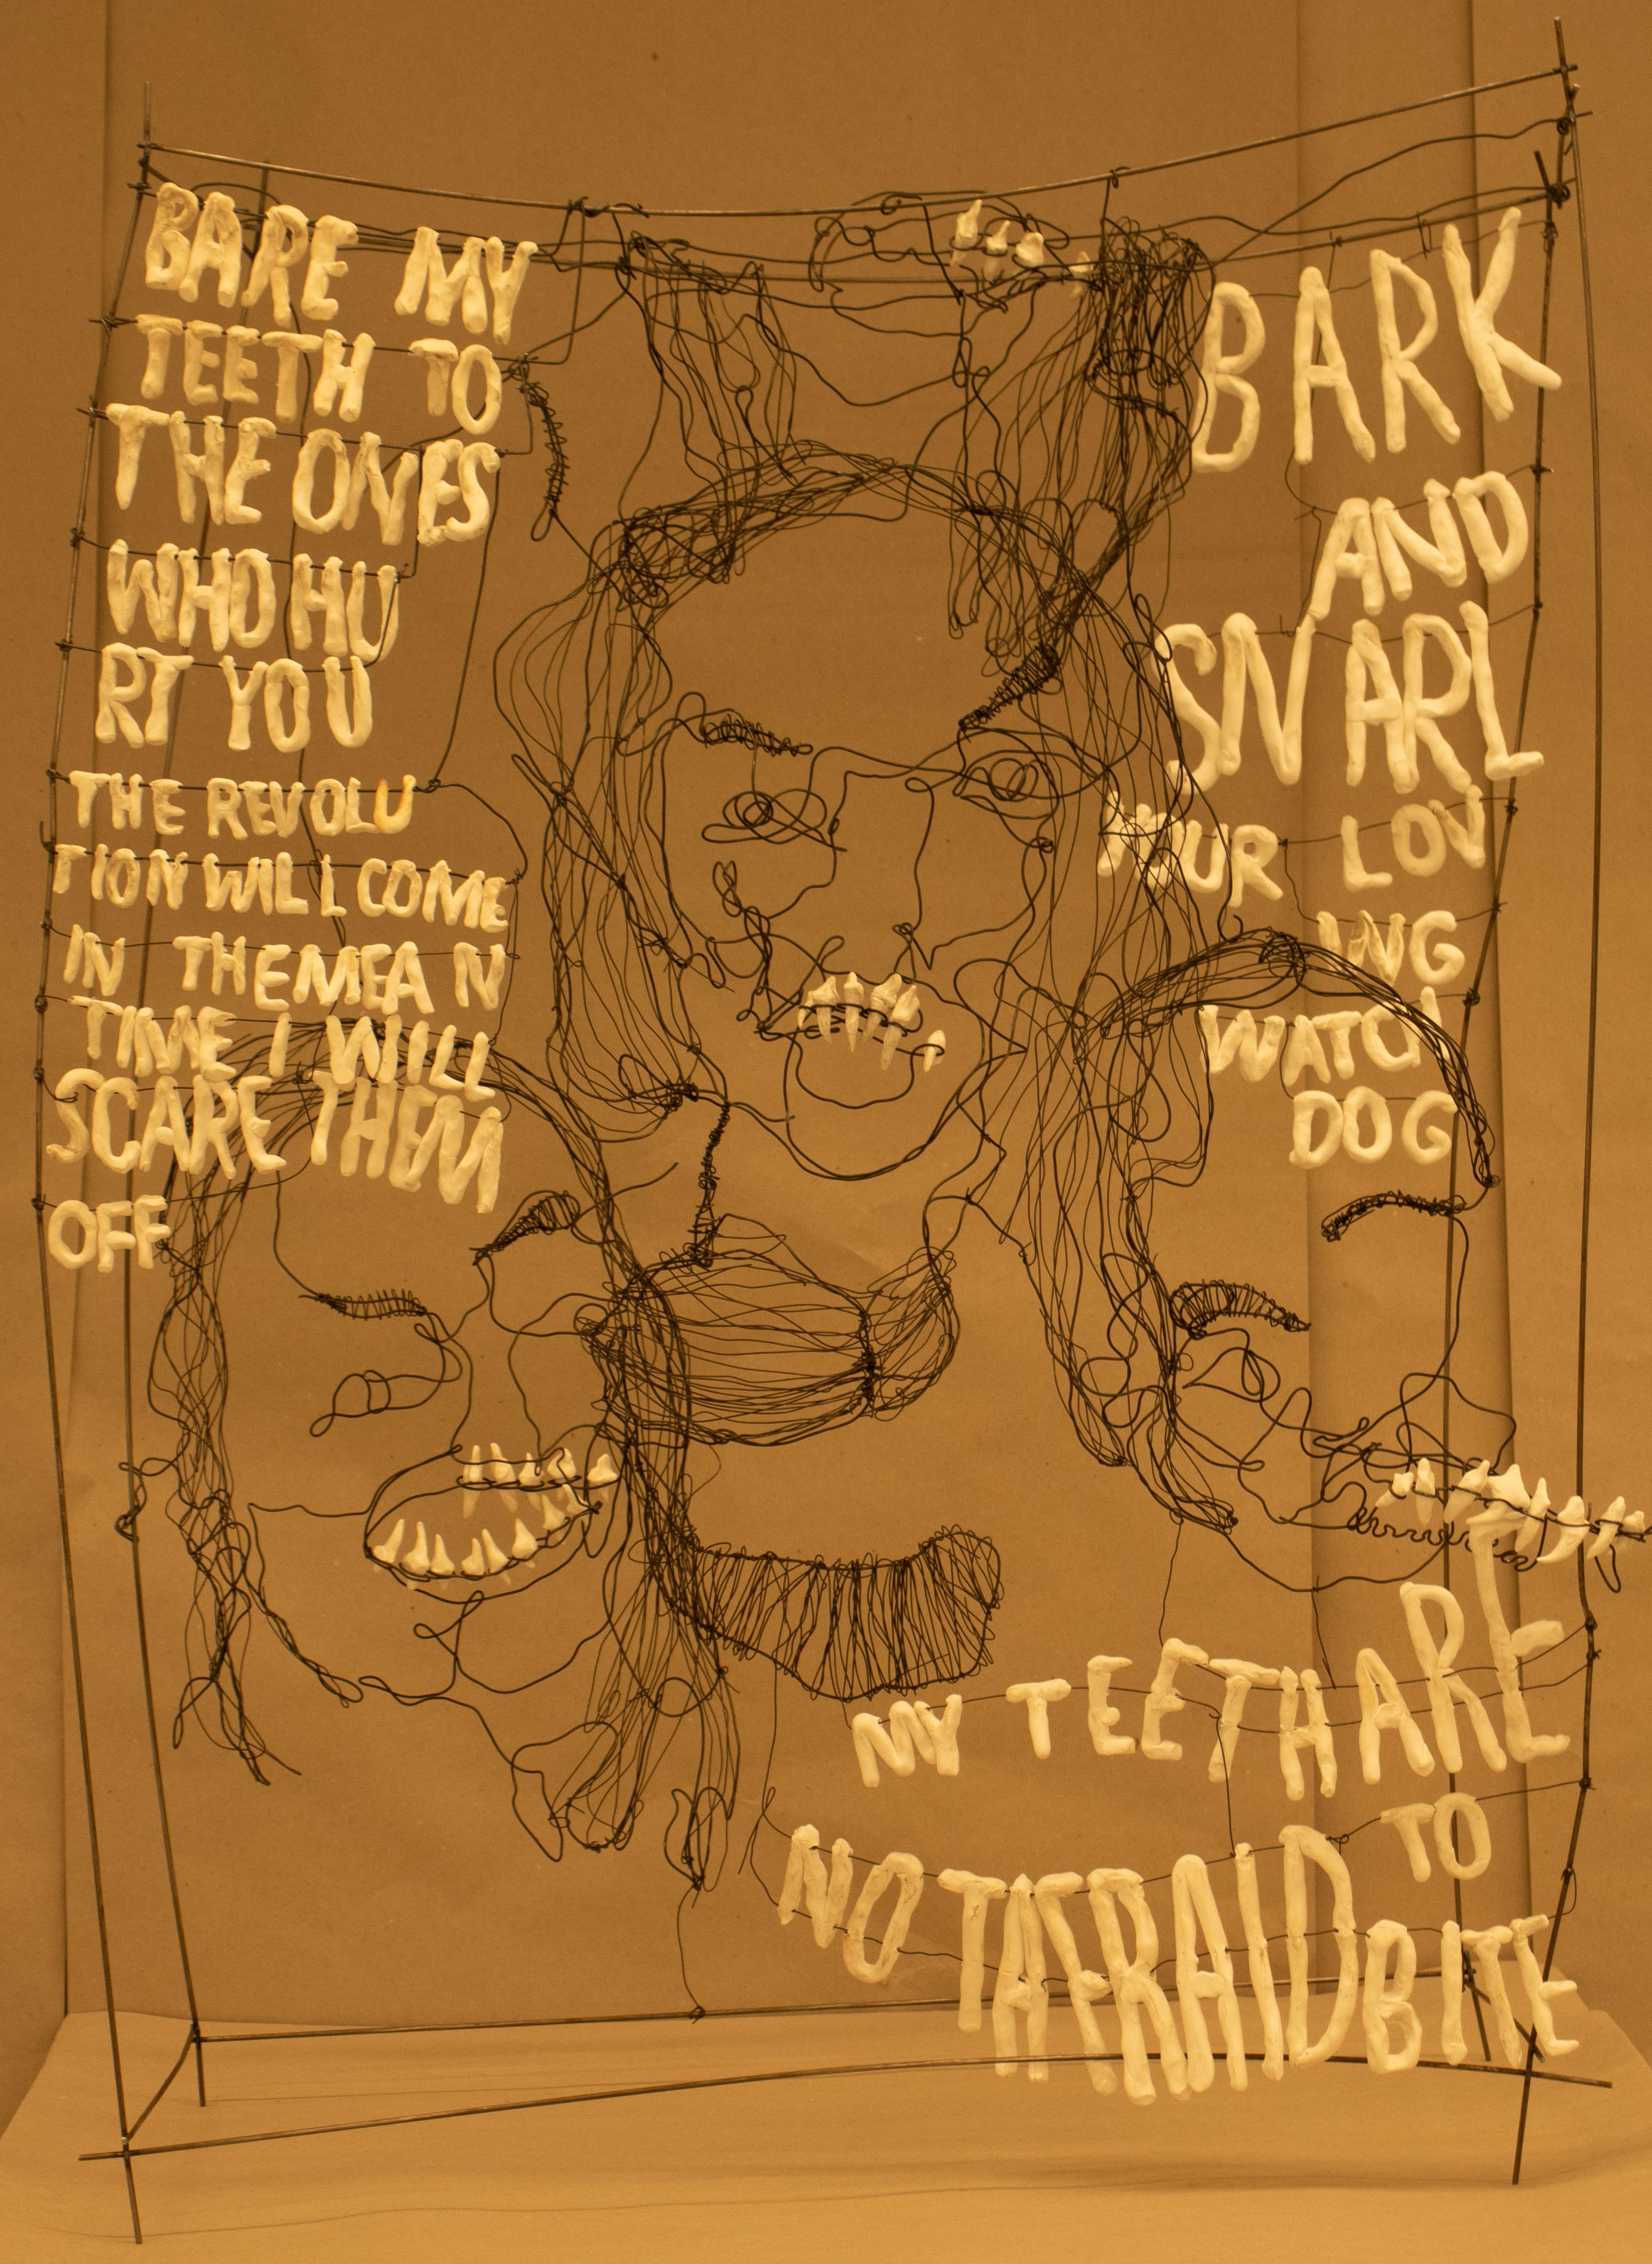 BARE MY
TEETH TO
THE ONES
WHO HU
RT YOU
THE REVOLU
TION WILL COME
IN THEMEA N
TIME I WILL
SCARE THEM
OFF
BARK
AND
SNARL
YOUR LOV
ING
WATCH
DOG
MY TEETH ARE
NOT AFRAID
TO
BITE